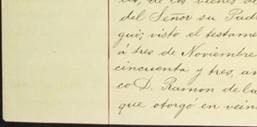 de los bienes
del Señor su Pad
guó; visto el testame
a tres de Noviembre
cincuenta y tres, an
co D. Ramon de la
que otorgó en vein